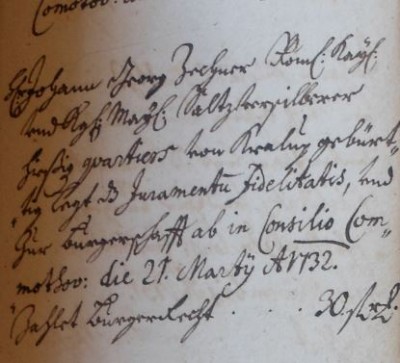 Comotov:
H: Johann Georg Zechner Röm: Kayß:
und Kgl: Mayß: Saltzversilberer
hießig quartiers von Kralup gebürt„
„tig legt d Juramentũ Fidelitatis, und
zur burgerschafft ab in Consilio Com„
mothov: die 21. Martÿ A 1732.
Zahlet Burgerrecht . . . 30.